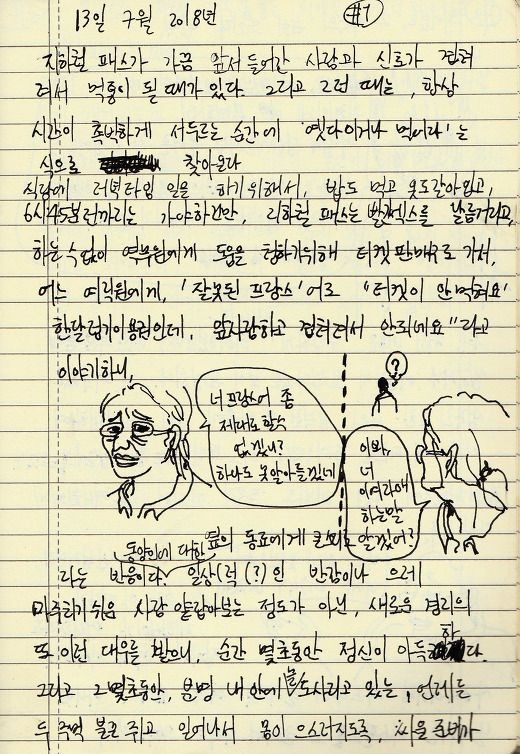 13일 7월 2018년
#1
지하철 패스가 가끔 앞서 들어간 사람과 신호가 겹쳐
려서 먹통이 될 때가 있다. 그리고 그런 때는, 항상
시간이 촉박하게 서두르는 순간에 '옛다 이거나 먹어라'는
식으로 찾아온다
식당에 저녁타임 일을 하기 위해서, 밥도 먹고 옷도 갈아입고,
6시45분전까지는 가야하건만, 지하철 패스는
하는 수 없이 역무원에게 도움을 청하기위해 티켓 판매부로 가서,
어느 여직원에게, '잘못된 프랑스'어로 "티켓이 안 먹혀요
한달 정기이용권인데, 앞사람하고 겹쳐져서 안되네요"라고
이야기하니,
너 프랑스어 좀
제대로 할수
없겠니?
하나도 못알아들겠네
?
이봐,
너
이여라애
하는말
알겠어?
옆의 동료에게 큰소리로
동양인에 대한
라는 반응이다. 일상적(?)인 반감이나 으레
마주하기 쉬운 사람 얕잡아보는 정도가 아닌, 새로운 경리의
또 이런 대우를 받으니, 순간 몇초동안 정신이 아득하다.
그리고 그 몇초동안, 분명 내 안에 늘 도사리고 있는, 언제든
두 주먹 불끈 쥐고 일어나서 몸이 으스러지도록, 싸울 준비가